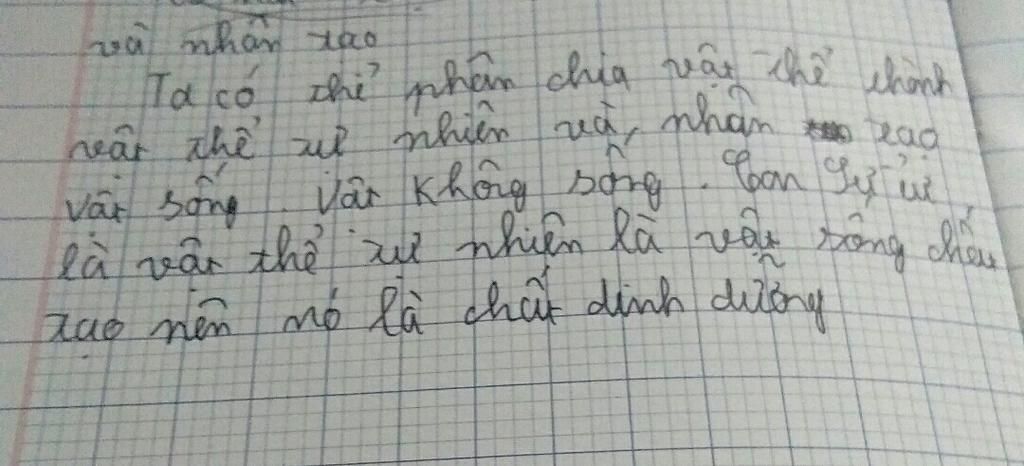 và nhân tạo
Ta có thể phân chia vật thể thành
vật thể tự nhiên và, nhân tạo
vật sống. Vật không sống. Con sư tử
là vật thể tự nhiên là vật sống chất
tạo nên nó là chất dinh dưỡng